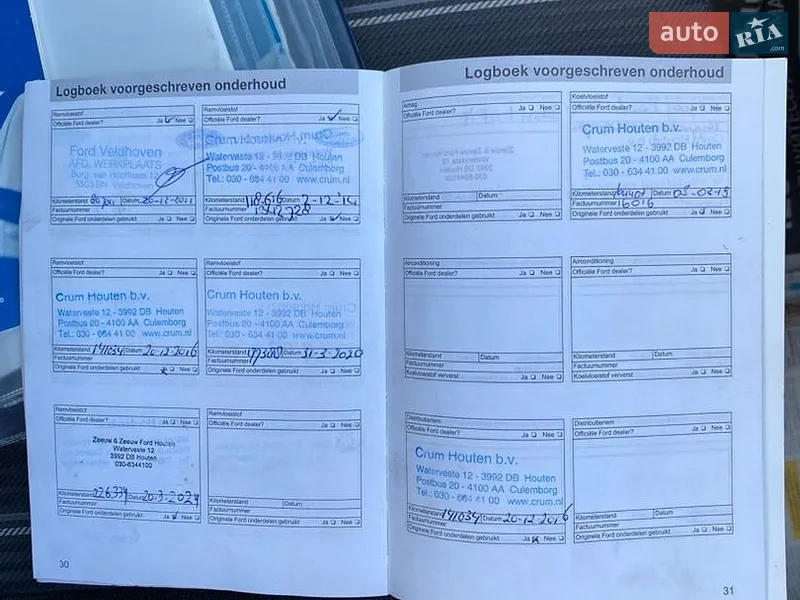 auto RIA .com
Logboek voorgeschreven onderhoud
Remvloeistof
Officiële Ford dealer? Ja Nee
Ford Veldhoven
AFD. WERKPLAATS
5503 BN Veldhoven
Kilometerstand Datum 20-12-2011
Factuurnummer
Originele Ford onderdelen gebruikt Ja Nee
Remvloeistof
Officiële Ford dealer? Ja Nee
Crum Houten b.v.
Waterveste 12 - 3992 DB Houten
Postbus 20 - 4100 AA Culemborg
Tel.: 030 - 634 41 00 www.crum.nl
Kilometerstand 118.616 Datum 2-12-14
Factuurnummer
Originele Ford onderdelen gebruikt Ja Nee
Remvloeistof
Officiële Ford dealer? Ja Nee
Crum Houten b.v.
Waterveste 12 - 3992 DB Houten
Postbus 20 - 4100 AA Culemborg
Tel.: 030 - 634 41 00 www.crum.nl
Kilometerstand 141034 Datum 20-12-2016
Factuurnummer
Originele Ford onderdelen gebruikt Ja Nee
Remvloeistof
Officiële Ford dealer? Ja Nee
Crum Houten b.v.
Waterveste 12 - 3992 DB Houten
Postbus 20 - 4100 AA Culemborg
Tel.: 030 - 634 41 00 www.crum.nl
Kilometerstand Datum 31-3-2020
Factuurnummer
Originele Ford onderdelen gebruikt Ja Nee
Remvloeistof
Officiële Ford dealer? Ja Nee
Zeeuw & Zeeuw Ford Houten
Waterveste 12
3992 DB Houten
030-6344100
Kilometerstand 226.334 Datum 20-3-2024
Factuurnummer
Originele Ford onderdelen gebruikt Ja Nee
Remvloeistof
Officiële Ford dealer? Ja Nee
Kilometerstand Datum
Factuurnummer
Originele Ford onderdelen gebruikt Ja Nee
30
Logboek voorgeschreven onderhoud
Airbag
Officiële Ford dealer? Ja Nee
Kilometerstand Datum
Factuurnummer
Originele Ford onderdelen gebruikt Ja Nee
Koelvloeistof
Officiële Ford dealer? Ja Nee
Crum Houten b.v.
Waterveste 12 - 3992 DB Houten
Postbus 20 - 4100 AA Culemborg
Tel.: 030 - 634 41 00 www.crum.nl
Kilometerstand Datum
Factuurnummer 16016
Originele Ford onderdelen gebruikt Ja Nee
Airconditioning
Officiële Ford dealer? Ja Nee
Kilometerstand Datum
Factuurnummer
Koelvloeistof ververst Ja Nee
Airconditioning
Officiële Ford dealer? Ja Nee
Kilometerstand Datum
Factuurnummer
Koelvloeistof ververst Ja Nee
Distributieriem
Officiële Ford dealer? Ja Nee
Crum Houten b.v.
Waterveste 12 - 3992 DB Houten
Postbus 20 - 4100 AA Culemborg
Tel.: 030 - 634 41 00 www.crum.nl
Kilometerstand 141034 Datum 20-12-2016
Factuurnummer
Originele Ford onderdelen gebruikt Ja Nee
Distributieriem
Officiële Ford dealer? Ja Nee
Kilometerstand Datum
Factuurnummer
Originele Ford onderdelen gebruikt Ja Nee
31